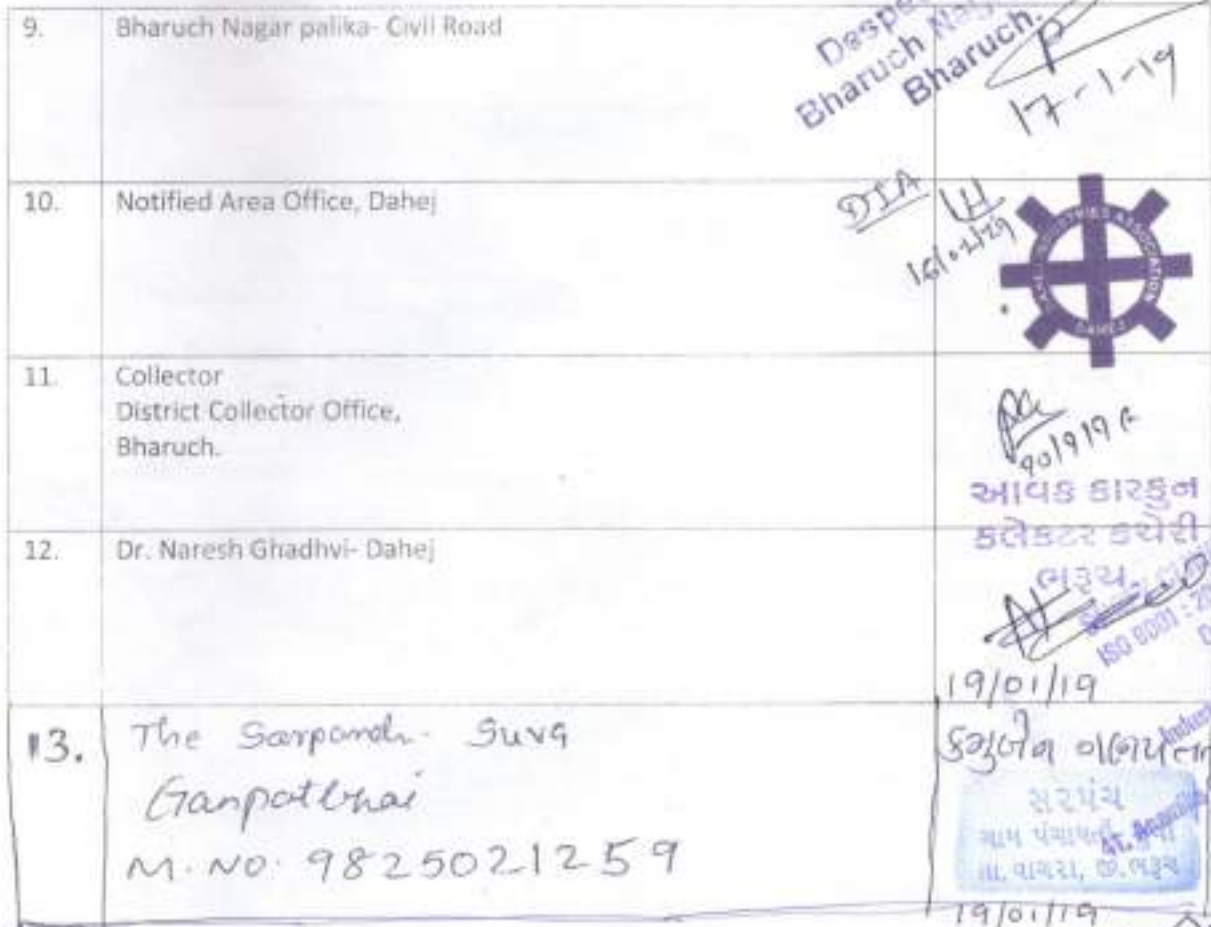 9. Bharuch Nagar palika- Civil Road
Bharuch
Bharuch.
17-1-19
10. Notified Area Office, Dahej
DIA
INDUSTRIES ASSOCIATION
DAHEJ
11. Collector
District Collector Office,
Bharuch.
આવક કારકુન
કલેકટર કચેરી
ભરૂચ.
12. Dr. Naresh Ghadhvi- Dahej
19/01/19
13. The Sarpanch. Suva
Ganpatbhai
M. NO. 9825021259
સરપંચ
ગામ પંચાયત
તા. વાગરા, જી. ભરૂચ
19/01/19